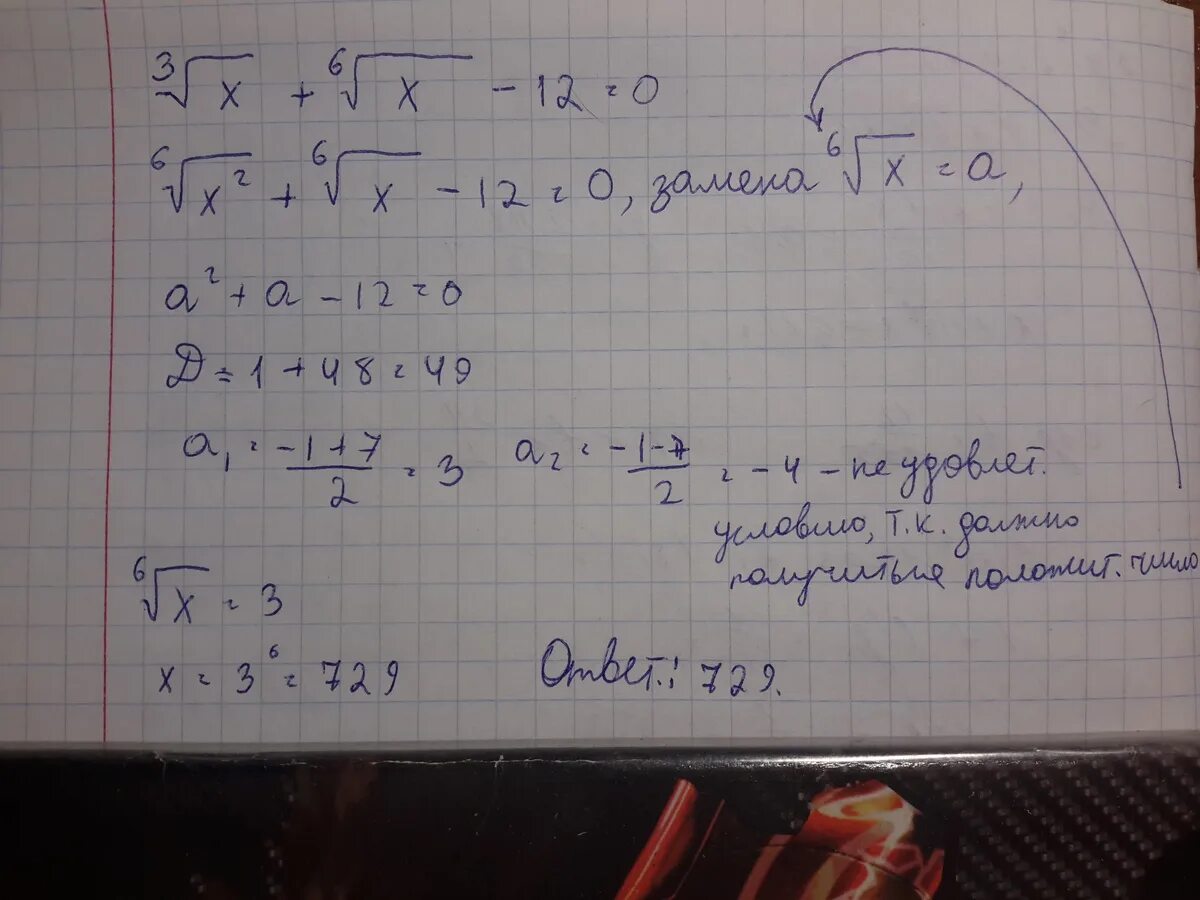 ∛x + ⁶√x - 12 = 0
⁶√x² + ⁶√x - 12 = 0, замена ⁶√x = a,
a² + a - 12 = 0
Д = 1 + 48 = 49
a₁ = (-1+7)/2 = 3 a₂ = (-1-7)/2 = -4 - не удовлет.
условию, т.к. должно
получиться положит. число
⁶√x = 3
x = 3⁶ = 729 Ответ: 729.